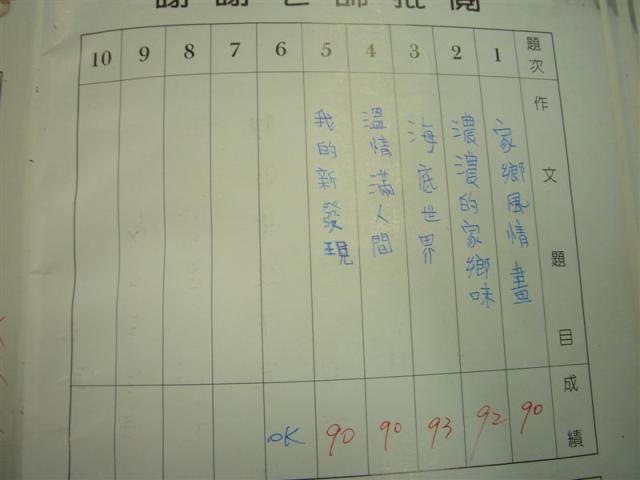 謝謝老師批閱
題次 1 2 3 4 5 6 7 8 9 10
作文題目
家鄉風情畫
濃濃的家鄉味
海底世界
溫情滿人間
我的新發現
成績 90 92 93 90 90 OK